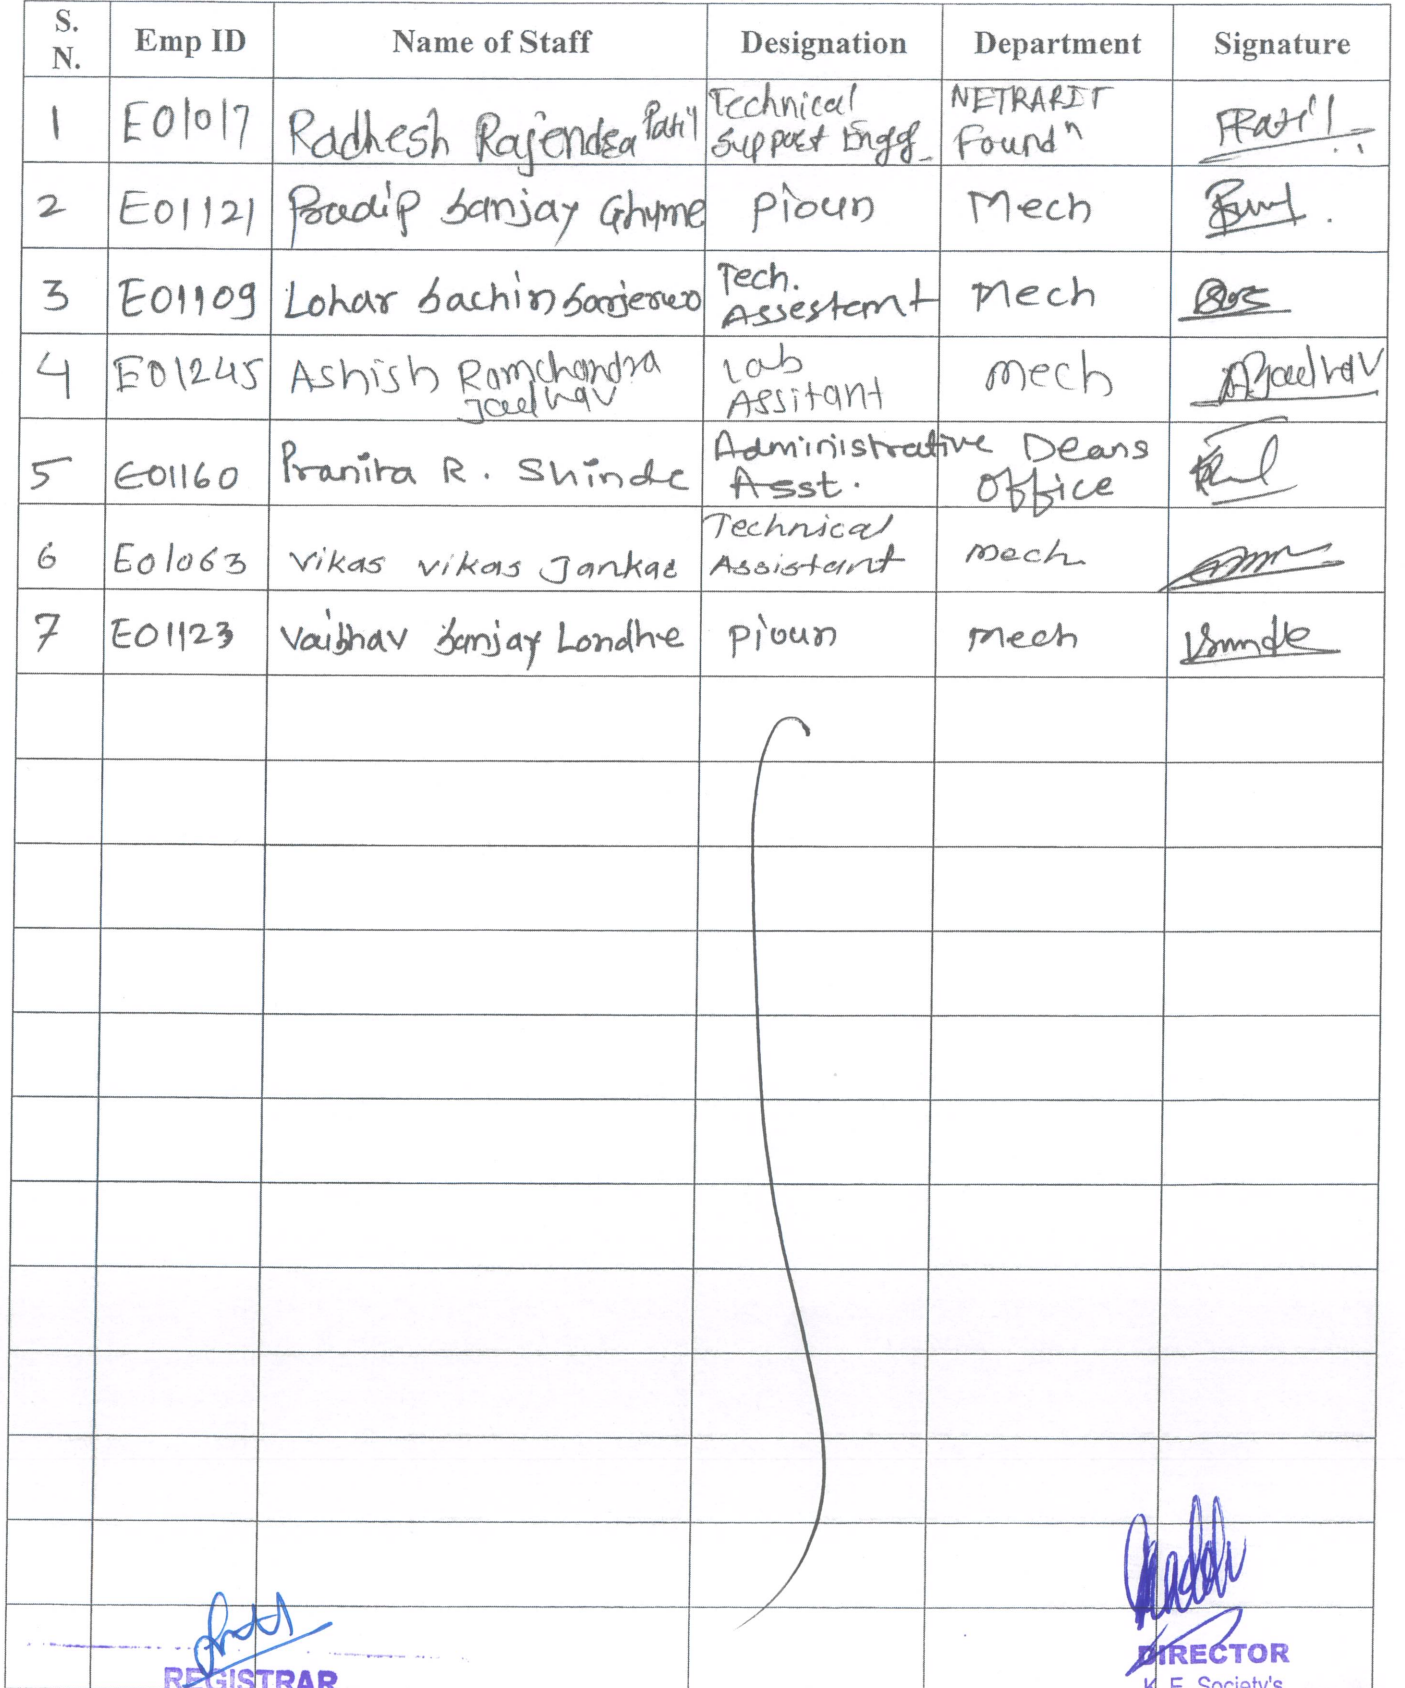 S. N. Emp ID Name of Staff Designation Department Signature
1 E01017 Radhesh Rajendra Patil Technical Support Engg. NETRARIT Foundⁿ
2 E01121 Pradip Sanjay Ghyme Pioun Mech
3 E01109 Lohar Sachin Sarjerao Tech. Assestemt Mech
4 E01245 Ashish Ramchandra Jadhav Lab Assitant Mech AJadhav
5 E01160 Pranita R. Shinde Administrative Asst. Deans Office
6 E01063 Vikas Vikas Jankar Technical Assistant Mech.
7 E01123 Vaibhav Sanjay Londhe Pioun Mech
REGISTRAR
DIRECTOR
K. E. Society's